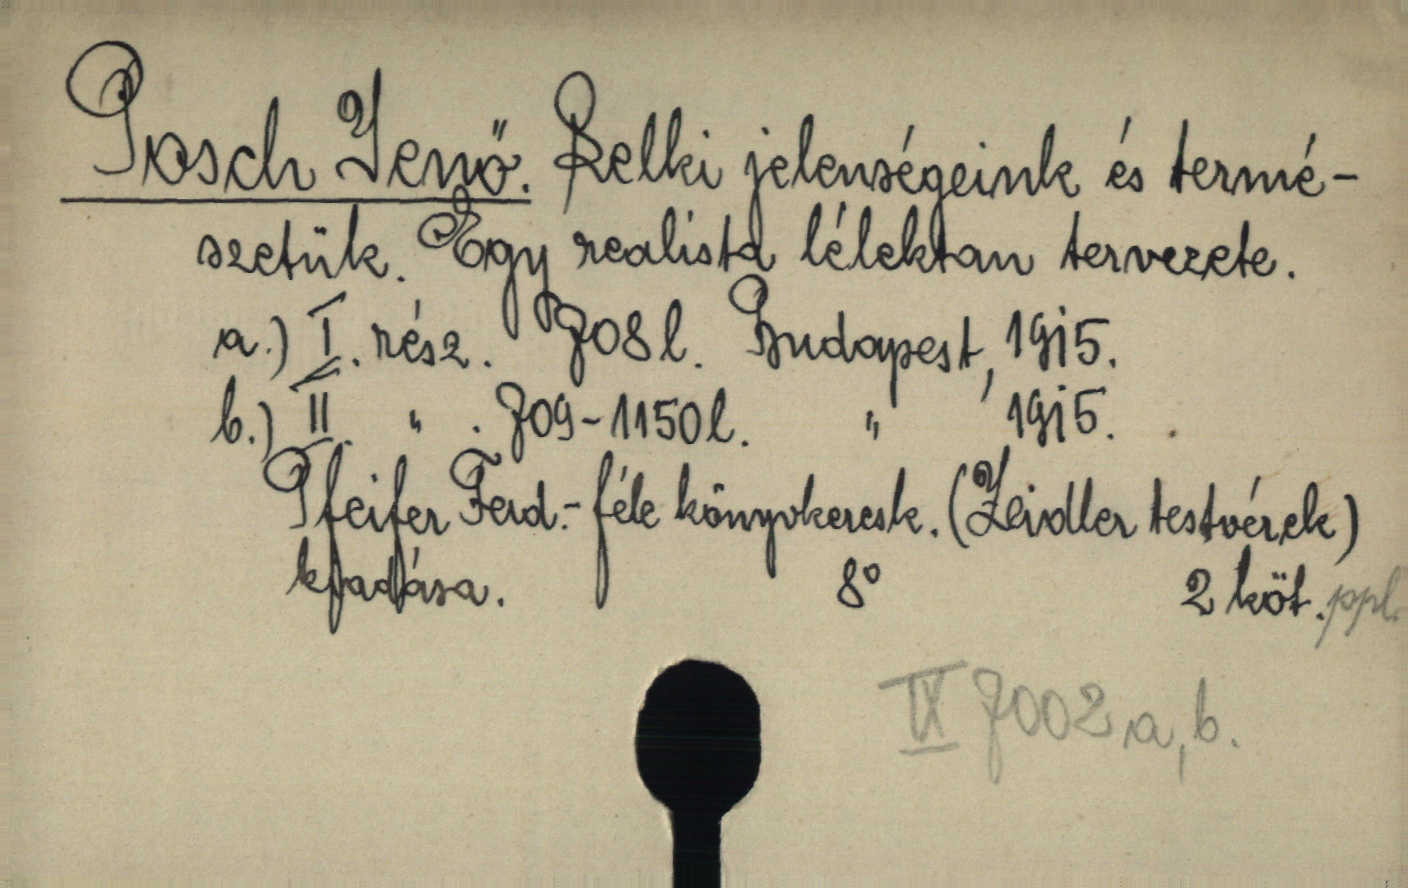 Posch Jenő. Lelki jelenségeink és termé-
szetük. Egy realista lélektan tervezete.
a.) I. rész. 708 l. Budapest, 1915.
b.) II. " . 709-1150 l. " 1915.
Pfeifer Ferd.-féle könyvkeresk. (Zeidler testvérek)
kiadása. 8° 2 köt. ppl.
IX 7002 a, b.